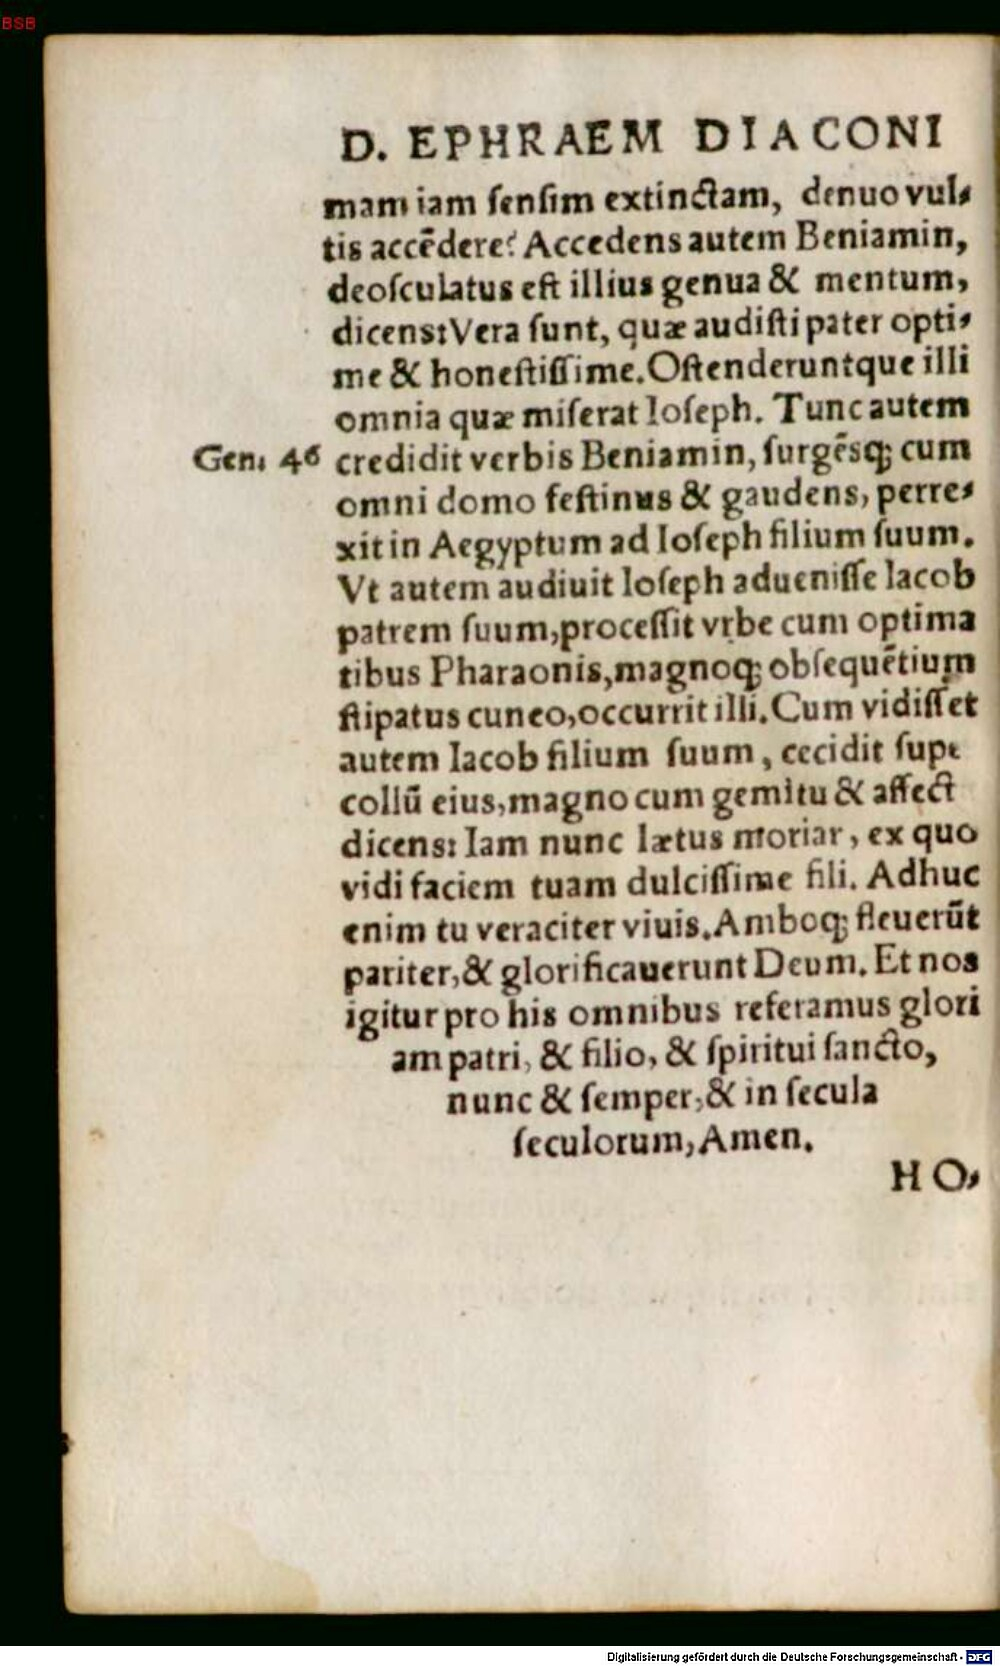 BSB
D. EPHRAEM DIACONI
mam iam ſenſim extinctam, denuo vul-
tis accēdere? Accedens autem Beniamin,
deoſculatus eſt illius genua & mentum,
dicens: Vera ſunt, quæ audiſti pater opti-
me & honeſtiſſime. Oſtenderuntque illi
omnia quæ miſerat Ioſeph. Tunc autem
Gen. 46 credidit verbis Beniamin, ſurgēsq; cum
omni domo feſtinus & gaudens, perre-
xit in Aegyptum ad Ioſeph filium ſuum.
Vt autem audiuit Ioſeph adueniſſe Iacob
patrem ſuum, proceſſit vrbe cum optima
tibus Pharaonis, magnoq; obſequētium
ſtipatus cuneo, occurrit illi. Cum vidiſſet
autem Iacob filium ſuum, cecidit ſupe
collū eius, magno cum gemitu & affect
dicens: Iam nunc lætus moriar, ex quo
vidi faciem tuam dulciſſime fili. Adhuc
enim tu veraciter viuis. Amboq; fleuerūt
pariter, & glorificauerunt Deum. Et nos
igitur pro his omnibus referamus glori
am patri, & filio, & ſpiritui ſancto,
nunc & ſemper, & in ſecula
ſeculorum, Amen.
HO-
Digitalisierung gefördert durch die Deutsche Forschungsgemeinschaft - DFG